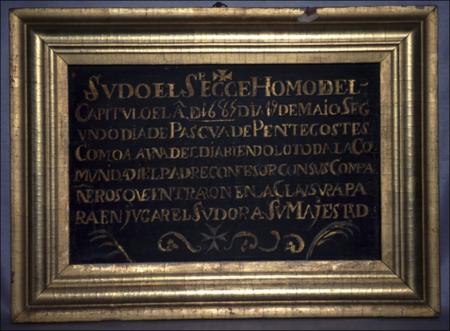 SVDO EL Sr ECCE HOMO DEL
CAPITVLO EL A. D 1685 DIA 19 DE MAIO SEG
VNDO DIA DE PASCVA DE PENTECOSTES
COMO A AVNA DEL DIA BIENDOLO TODA LA CO
MVNDAD I EL PADRE CONFESOR CON SVS COMPA
ÑEROS QVE ENTRARON EN LA CLAVSVRA PA
RA ENJVGAR EL SVDOR A SV MAJESTD